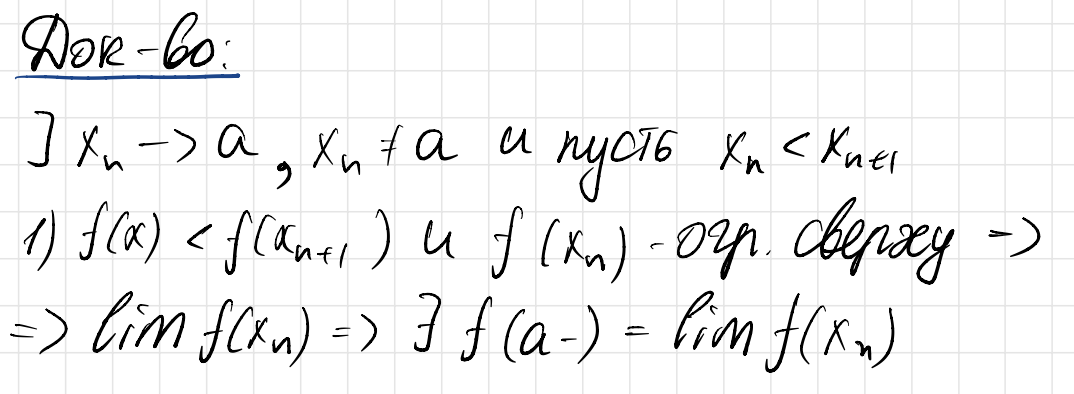 Док-во:
] xₙ -> a, xₙ ≠ a и пусть xₙ < xₙ₊₁
1) f(x) < f(xₙ₊₁) и f(xₙ) - огр. сверху =>
=> lim f(xₙ) => ∃ f(a-) = lim f(xₙ)